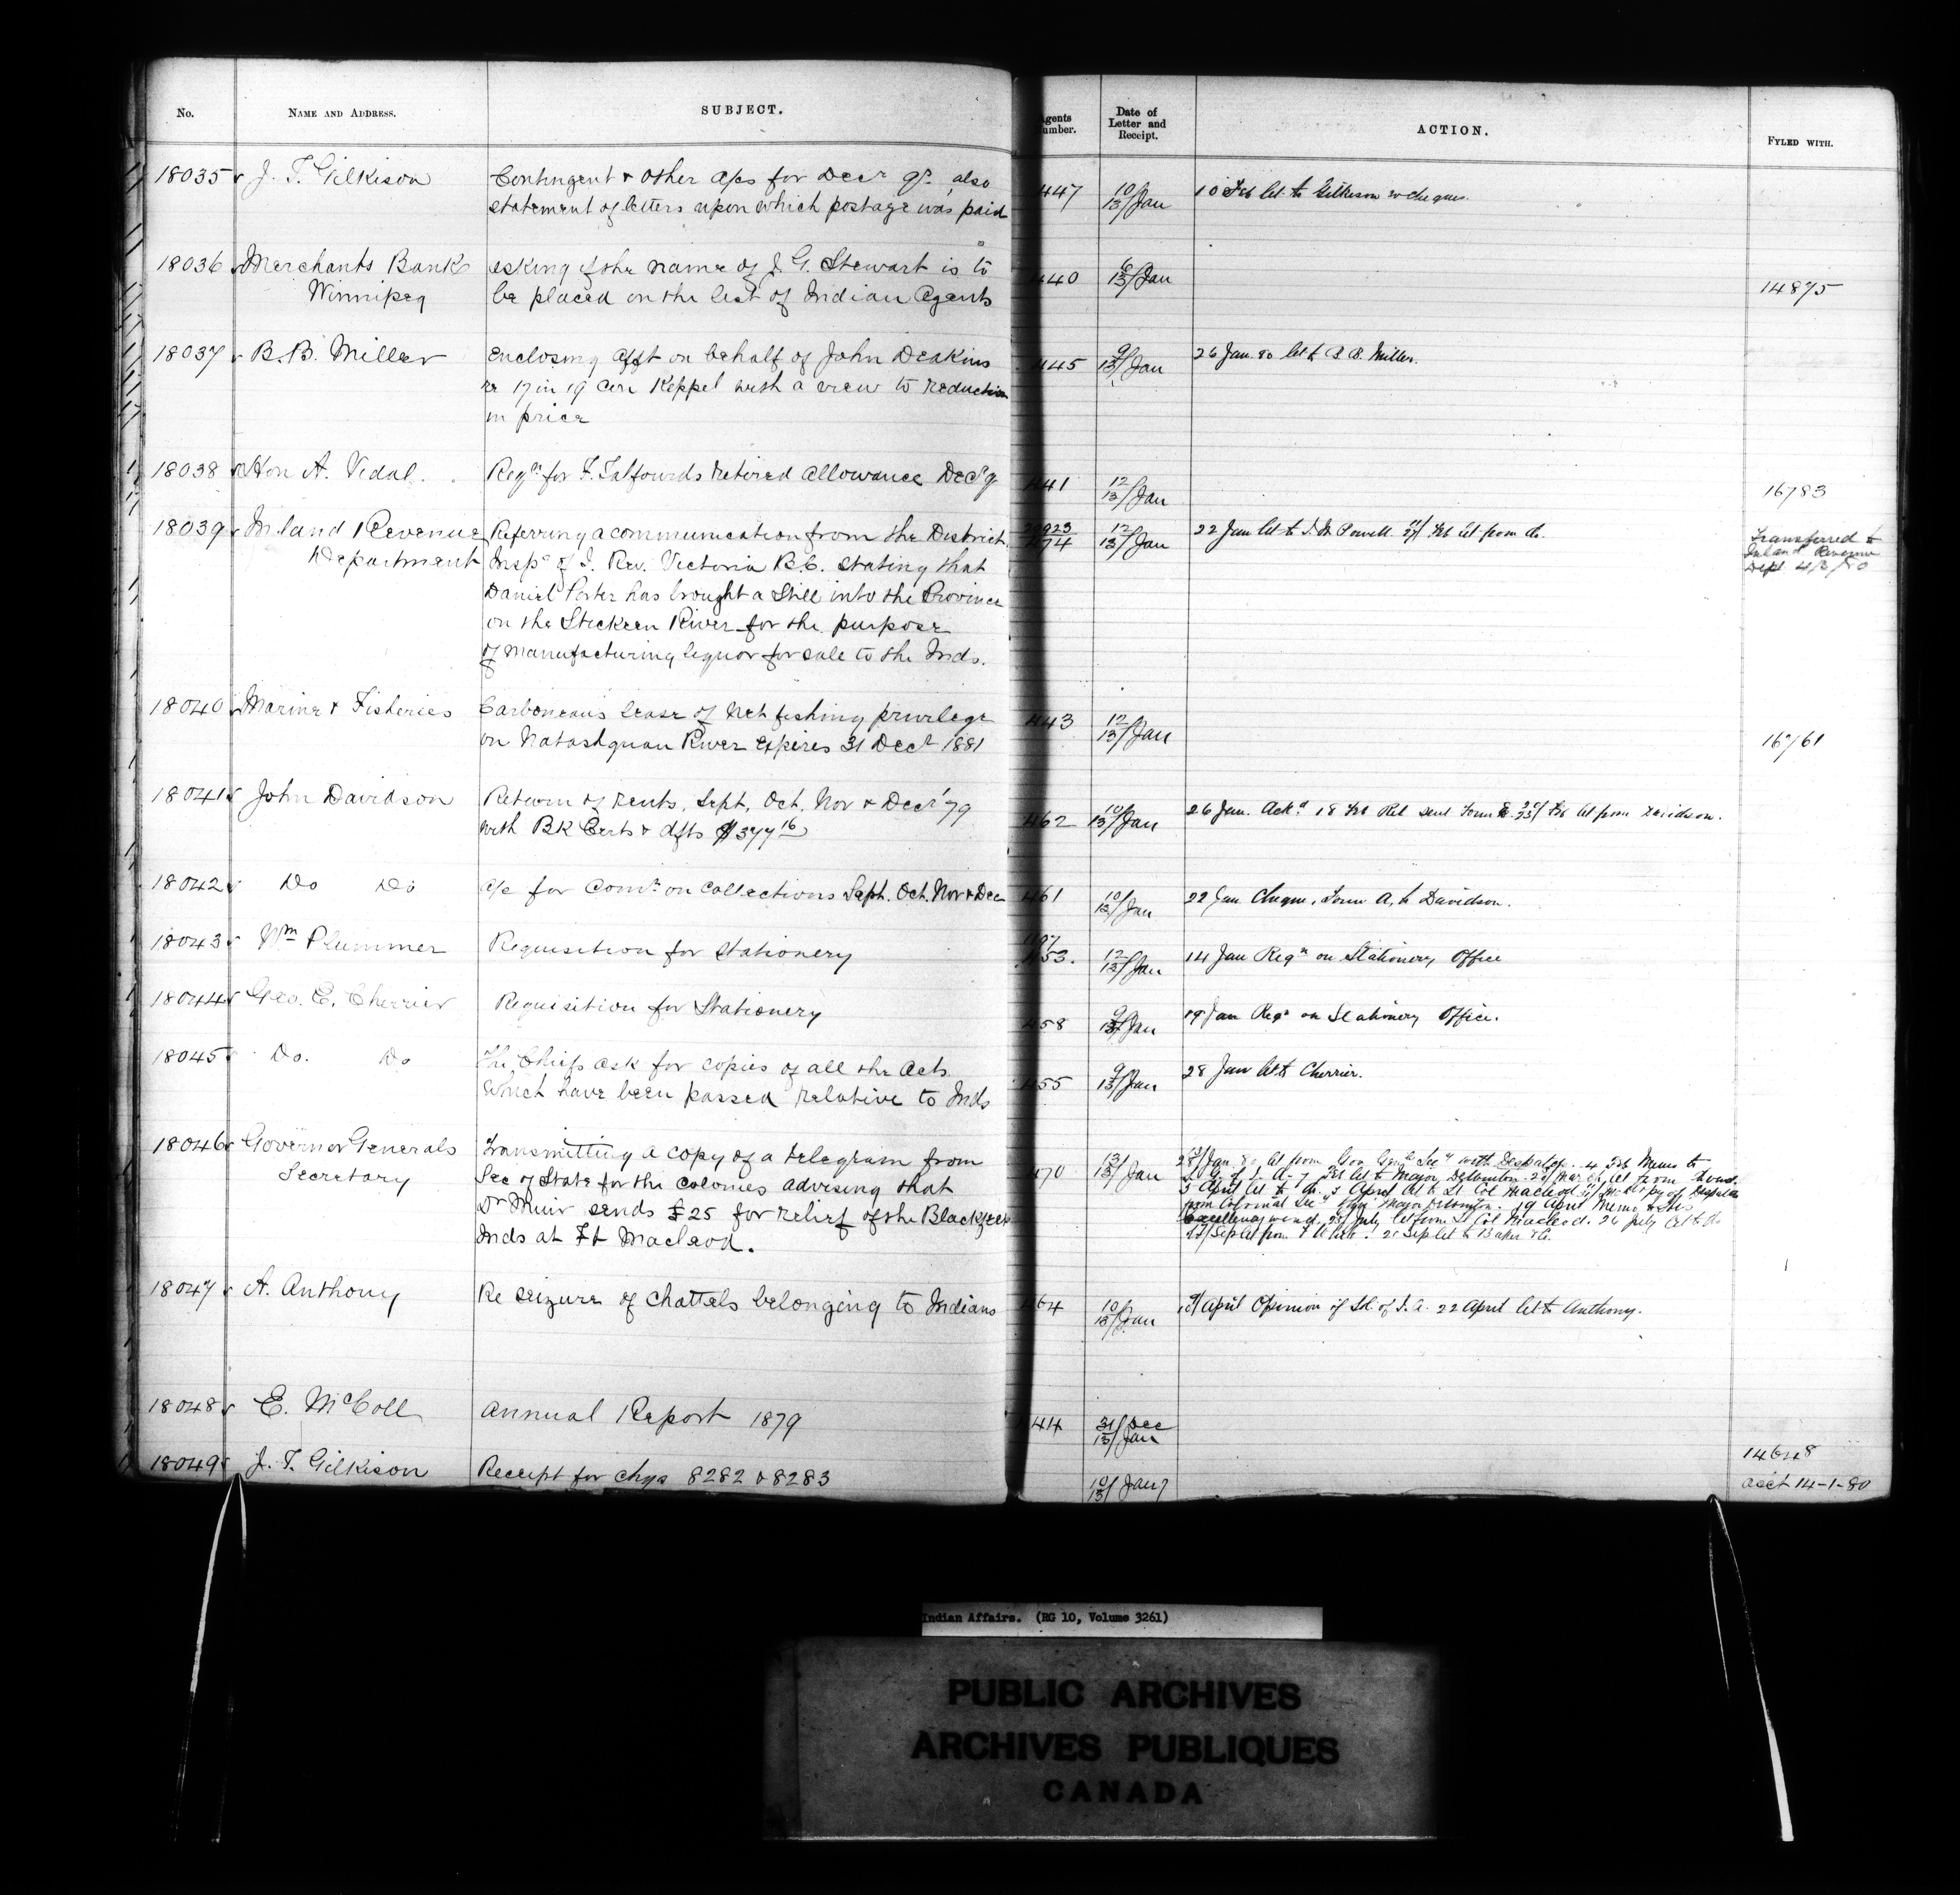 No. NAME AND ADDRESS. SUBJECT. Agents Number. Date of Letter and Receipt. ACTION. FYLED WITH.
18035 J. T. Gilkison Contingent & other a/cs for Decr qr. also 447 10/13 Jan 10 Feb let to Gilkison w cheques.
statement of letters upon which postage was paid
18036 Merchants Bank asking if the name of J. G. Stewart is to 440 6/13 Jan
Winnipeg be placed on the list of Indian Agents 14875
18037 B. B. Miller Enclosing afft on behalf of John Deakins 445 9/13 Jan 26 Jan. 80 let to B. B. Miller.
re 17 in 19 Con Keppel with a view to reduction
in price
18038 Hon A. Vidal. Reqn for F. Talfourds retired allowance Decr q 441 12/13 Jan 16783
18039 Inland Revenue Referring a communication from the District 20923 474 12/13 Jan 22 Jan let to I. W. Powell. Feb let from do. Transferred to
Department Inspr of I. Rev. Victoria B.C. stating that Inland Revenue
Daniel Porter has brought a Still into the Province Dept 4/3/80
on the Stickeen River for the purpose
of manufacturing liquor for sale to the Inds.
18040 Marine & Fisheries Carboneau's lease of Net fishing privilege 443 12/13 Jan
on Natashquan River expires 31 Decr 1881 16761
18041 John Davidson Return of Rents, Sept, Oct, Nov & Decr '79 462 10/13 Jan 26 Jan. Ackd 18 Feb Ret sent Form Feb let from Davidson.
with Bk Certs & dfts $377 16
18042 Do Do a/c for Comn on collections Sept. Oct. Nov & Dec 461 10/13 Jan 22 Jan Cheque, Form A, to Davidson.
18043 Wm Plummer Requisition for Stationery 453. 12/13 Jan 14 Jan Reqn on Stationery Office
18044 Geo. E. Cherrier Requisition for Stationery 458 9/13 Jan 19 Jan Reqn on Stationery Office.
18045 Do. Do The Chiefs ask for copies of all the Acts 455 9/13 Jan 28 Jan let to Cherrier.
which have been passed relative to Inds
18046 Governor Generals Transmitting a copy of a telegram from 470 13/13 Jan Jan. 80 let from Gov Genls Secy with Despatch. 4 Feb Memo to
Secretary Sec of State for the Colonies advising that Feb let to Major Delbouton let from
Dr Muir sends £25 for relief of the Blackfeet 5 April let to April let to Lt Col Macleod
Inds at Ft Macleod. from Colonial Secy Major 19 April Memo to His
Excellency July let from Lt Col Macleod. 26 July let to do
Sep let from Sep let to Baker & Co.
18047 A. Anthony Re seizure of Chattels belonging to Indians 464 10/13 Jan April Opinion of Sd. of I. A. 22 April let to Anthony.
18048 E. McColl Annual Report 1879 444 31/Dec 13/Jan 14648
18049 J. T. Gilkison Receipt for chqs 8282 & 8283 10/13 Jan acct 14-1-80
Indian Affairs. (RG 10, Volume 3261)
PUBLIC ARCHIVES
ARCHIVES PUBLIQUES
CANADA